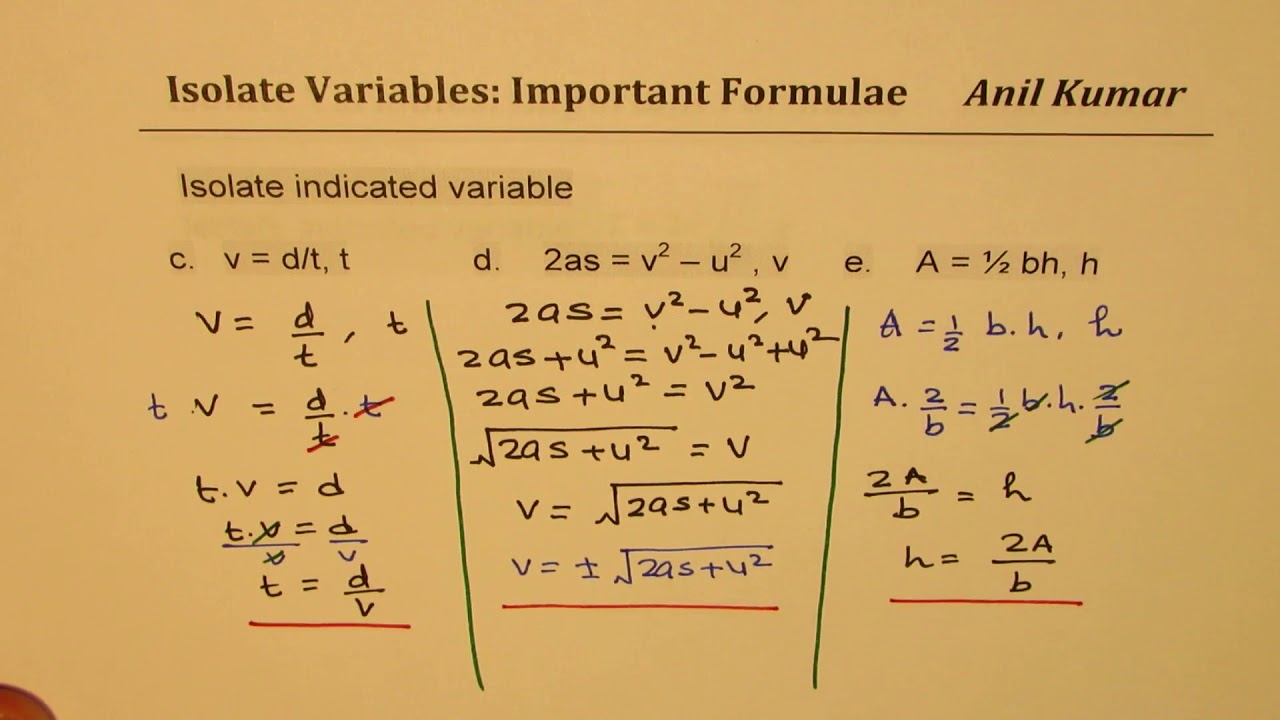 Isolate Variables: Important Formulae Anil Kumar
Isolate indicated variable
c. v = d/t, t
V = d/t, t
t . V = d/t . t
t . v = d
t . v/v = d/v
t = d/v
d. 2as = v² – u² , v
2as = v² – u², v
2as + u² = v² – u² + u²
2as + u² = v²
√(2as + u²) = v
v = √(2as + u²)
v = ± √(2as + u²)
e. A = ½ bh, h
A = 1/2 b . h, h
A . 2/b = 1/2 b . h . 2/b
2A/b = h
h = 2A/b